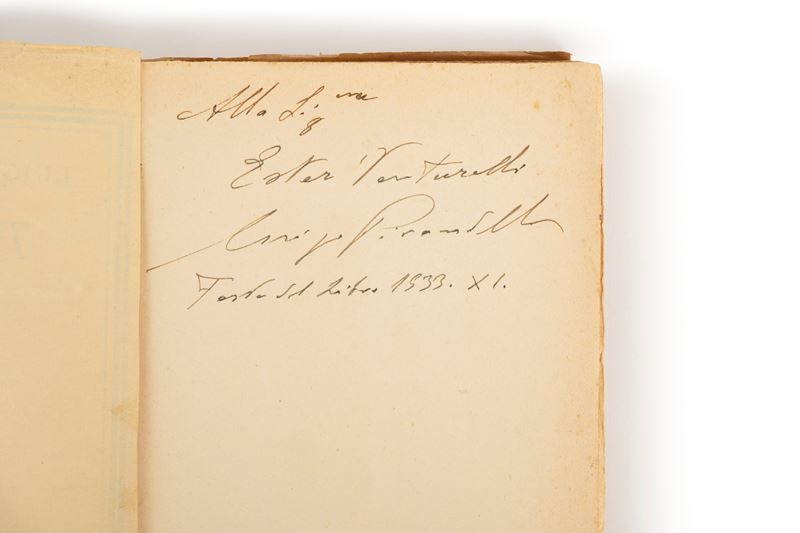 Alla Sig.na
Ester Venturelli
Luigi Pirandello
Festa del Libro 1933. XI.
LUIG